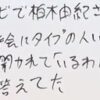 ビで柏木由紀さ
会にタイプの人い
聞かれているわ
答えてた